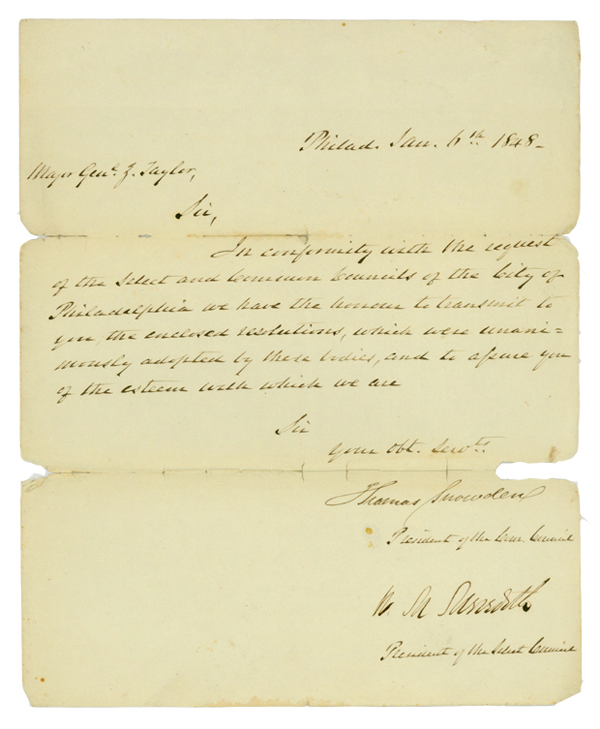 Philad. Jan. 6th 1848-
Major Genl. Z. Taylor,
Sir,
In conformity with the request
of the Select and Common Councils of the City of
Philadelphia we have the honour to transmit to
you, the enclosed resolutions, which were unani=
mously adopted by these bodies, and to assure you
of the esteem with which we are
Sir
your Obt. Servts.
Thomas Snowden
President of the Com. Council
W. M. Meredith
President of the Select Council